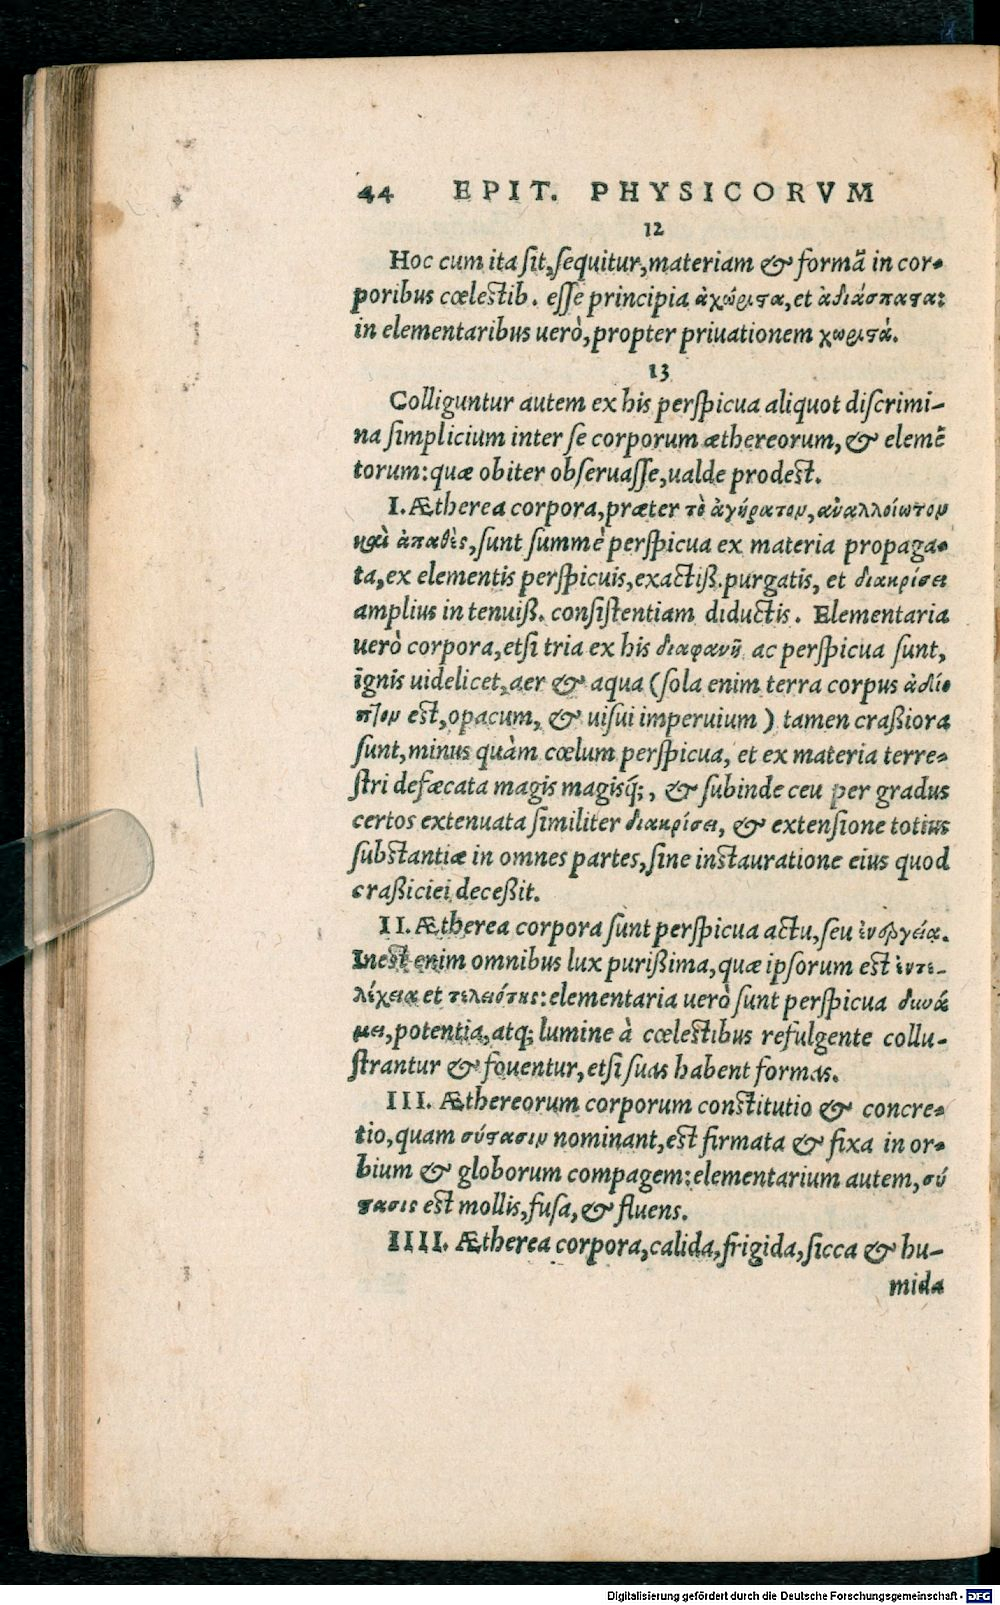 44 EPIT. PHYSICORVM
12
Hoc cum ita ſit, ſequitur, materiam & formã in cor-
poribus cœleſtib. eſſe principia ἀχώριστα, et ἀδιάσπαστα:
in elementaribus uerò, propter priuationem χωριστά.
13
Colliguntur autem ex his perſpicua aliquot diſcrimi-
na ſimplicium inter ſe corporum æthereorum, & elemẽ
torum: quæ obiter obſeruaſſe, ualde prodeſt.
I. Ætherea corpora, præter τὸ ἀγήρατον, ἀναλλοίωτον
καὶ ἀπαθὲς, ſunt ſummè perſpicua ex materia propaga-
ta, ex elementis perſpicuis, exactiß. purgatis, et διακρίσει
amplius in tenuiß. conſiſtentiam diductis. Elementaria
uerò corpora, etſi tria ex his διαφανῆ ac perſpicua ſunt,
ignis uidelicet, aer & aqua (ſola enim terra corpus ἀδίο
πτον eſt, opacum, & uiſui imperuium) tamen craßiora
ſunt, minus quàm cœlum perſpicua, et ex materia terre-
ſtri defæcata magis magisq́;, & ſubinde ceu per gradus
certos extenuata ſimiliter διακρίσει, & extenſione totius
ſubſtantiæ in omnes partes, ſine inſtauratione eius quod
craßiciei deceßit.
II. Ætherea corpora ſunt perſpicua actu, ſeu ἐνεργείᾳ.
Ineſt enim omnibus lux purißima, quæ ipſorum eſt ἐντε-
λέχεια et τελειότης: elementaria uerò ſunt perſpicua δυνά
μει, potentia, atq; lumine à cœleſtibus refulgente collu-
ſtrantur & fouentur, etſi ſuas habent formas.
III. Æthereorum corporum conſtitutio & concre-
tio, quam σύστασιν nominant, eſt firmata & fixa in or-
bium & globorum compagem: elementarium autem, σύ
στασις eſt mollis, fuſa, & fluens.
IIII. Ætherea corpora, calida, frigida, ſicca & hu-
mida
Digitalisierung gefördert durch die Deutsche Forschungsgemeinschaft - DFG